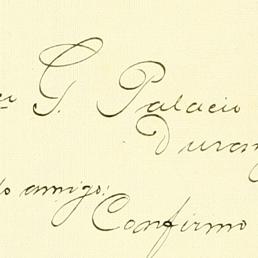 G. Palacio
Duran
amigo:
Confirmo